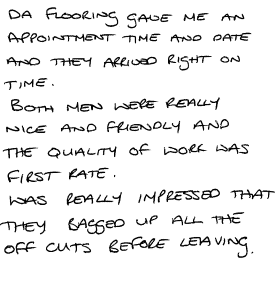 DA FLOORING GAVE ME AN
APPOINTMENT TIME AND DATE
AND THEY ARRIVED RIGHT ON
TIME.
BOTH MEN WERE REALLY
NICE AND FRIENDLY AND
THE QUALITY OF WORK WAS
FIRST RATE.
WAS REALLY IMPRESSED THAT
THEY BAGGED UP ALL THE
OFF CUTS BEFORE LEAVING.